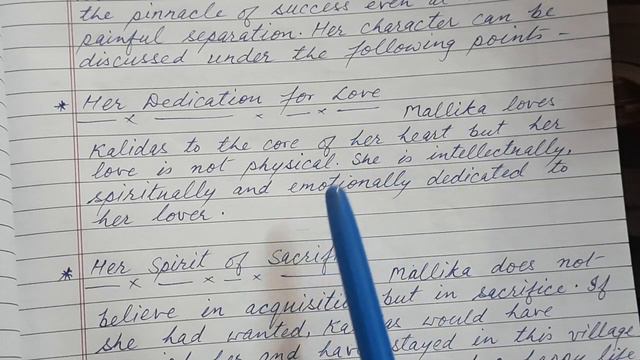 the pinnacle of success even at
painful separation. Her character can be
discussed under the following points -
* Her Dedication for Love
Mallika loves
Kalidas to the core of her heart but her
love is not physical. She is intellectually,
spiritually and emotionally dedicated to
her lover.
* Her Spirit of
Mallika does not
believe in but in sacrifice. If
she had wanted, would have
her and have stayed in this village
life